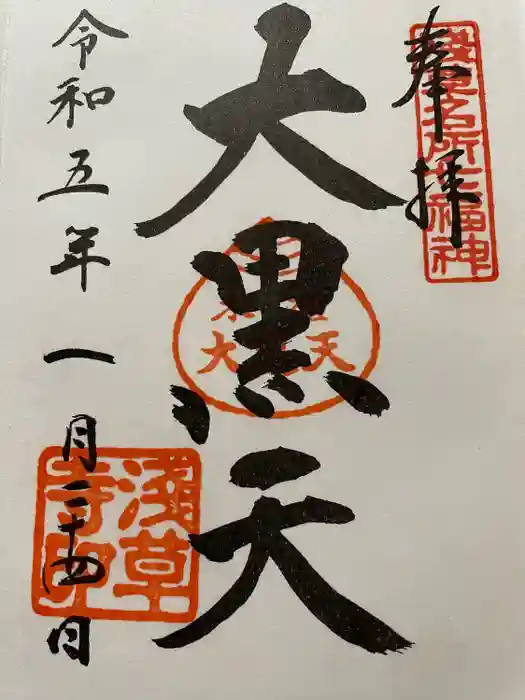 奉拝
浅草名所七福神
大黒天
令和五年一月二十四日
浅草寺印